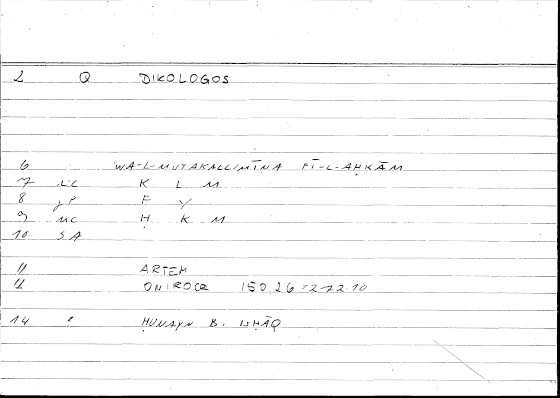 2 Q DIKOLOGOS
6 WA-L-MUTAKALLIMĪNA FĪ-L-AḤKĀM
7 NC K L M
8 JP F Y
9 NC Ḥ K M
10 SA
11 ARTEM
12 ONIROCR 150,26 = 272.10
14 ḤUNAYN B. ISḤĀQ